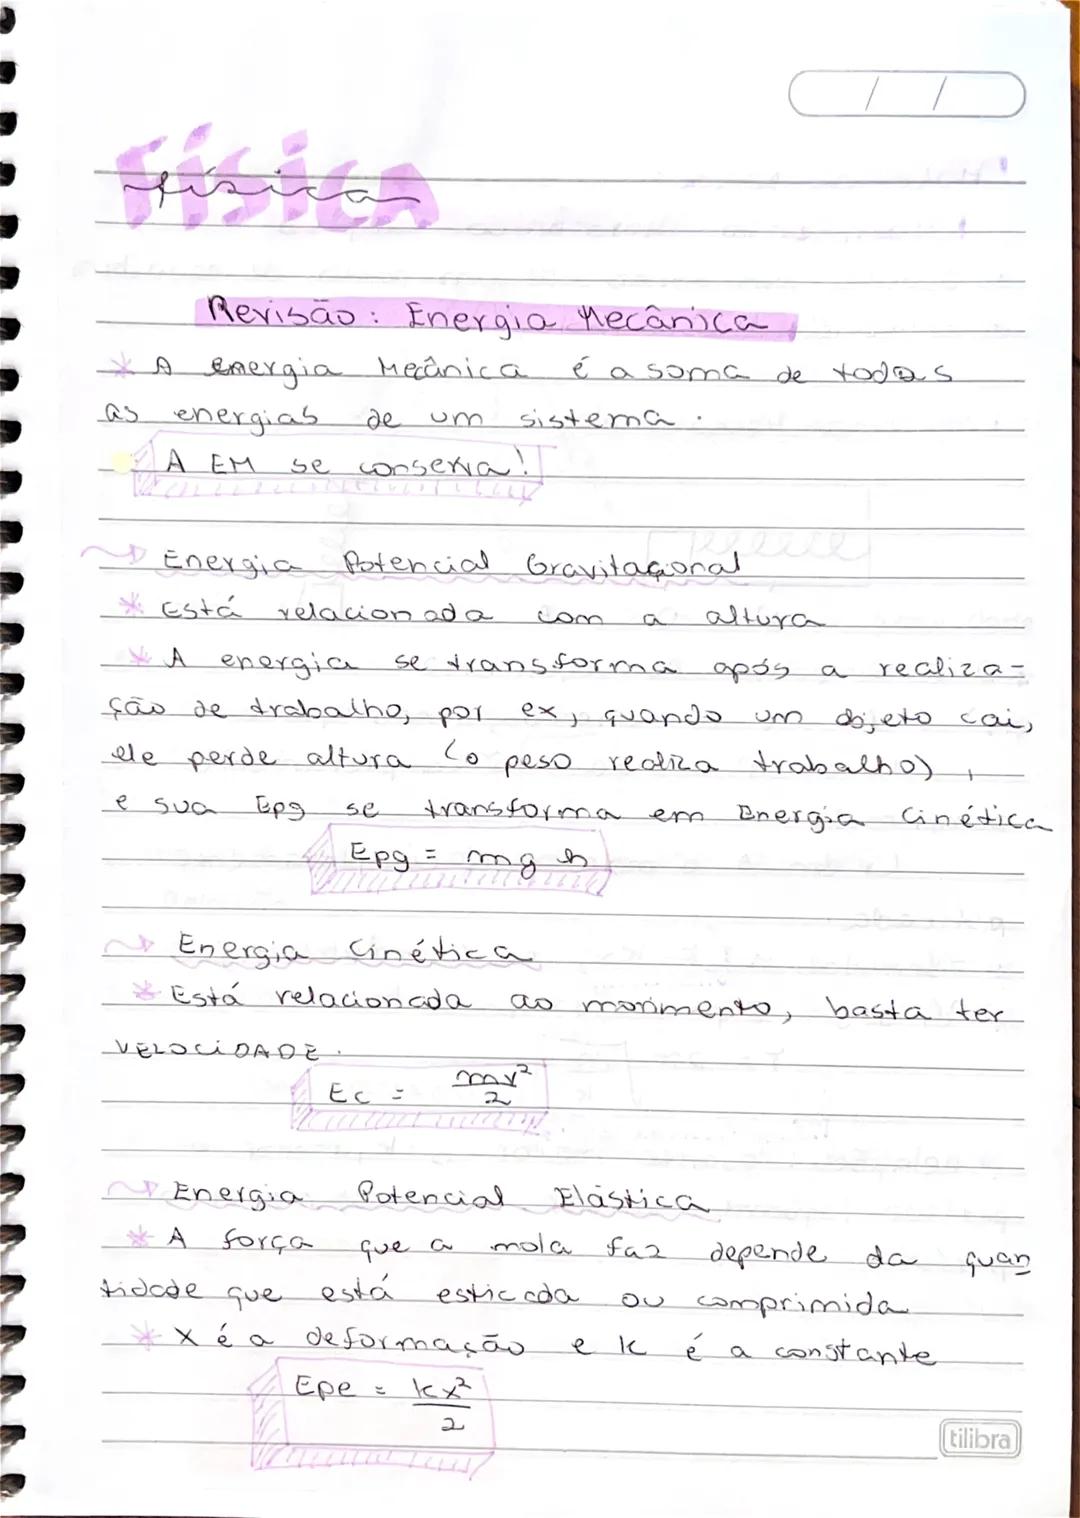 / /
Física
física
Revisão: Energia Mecânica
* A energia Mecânica é a soma de todas
as energias de um sistema.
A EM se conserva!
Energia Potencial Gravitacional
* Está relacionada com a altura
* A energia se transforma após a realiza-
ção de trabalho, por ex, quando um objeto cai,
ele perde altura (o peso realiza trabalho),
e sua Epg se transforma em Energia Cinética
Epg = mgh
Energia Cinética
* Está relacionada ao movimento, basta ter
VELOCIDADE.
Ec = mv²/2
Energia Potencial Elástica
* A força que a mola faz depende da quan
tidade que está esticada ou comprimida
* X é a deformação e k é a constante
Epe = kx²/2
tilibra